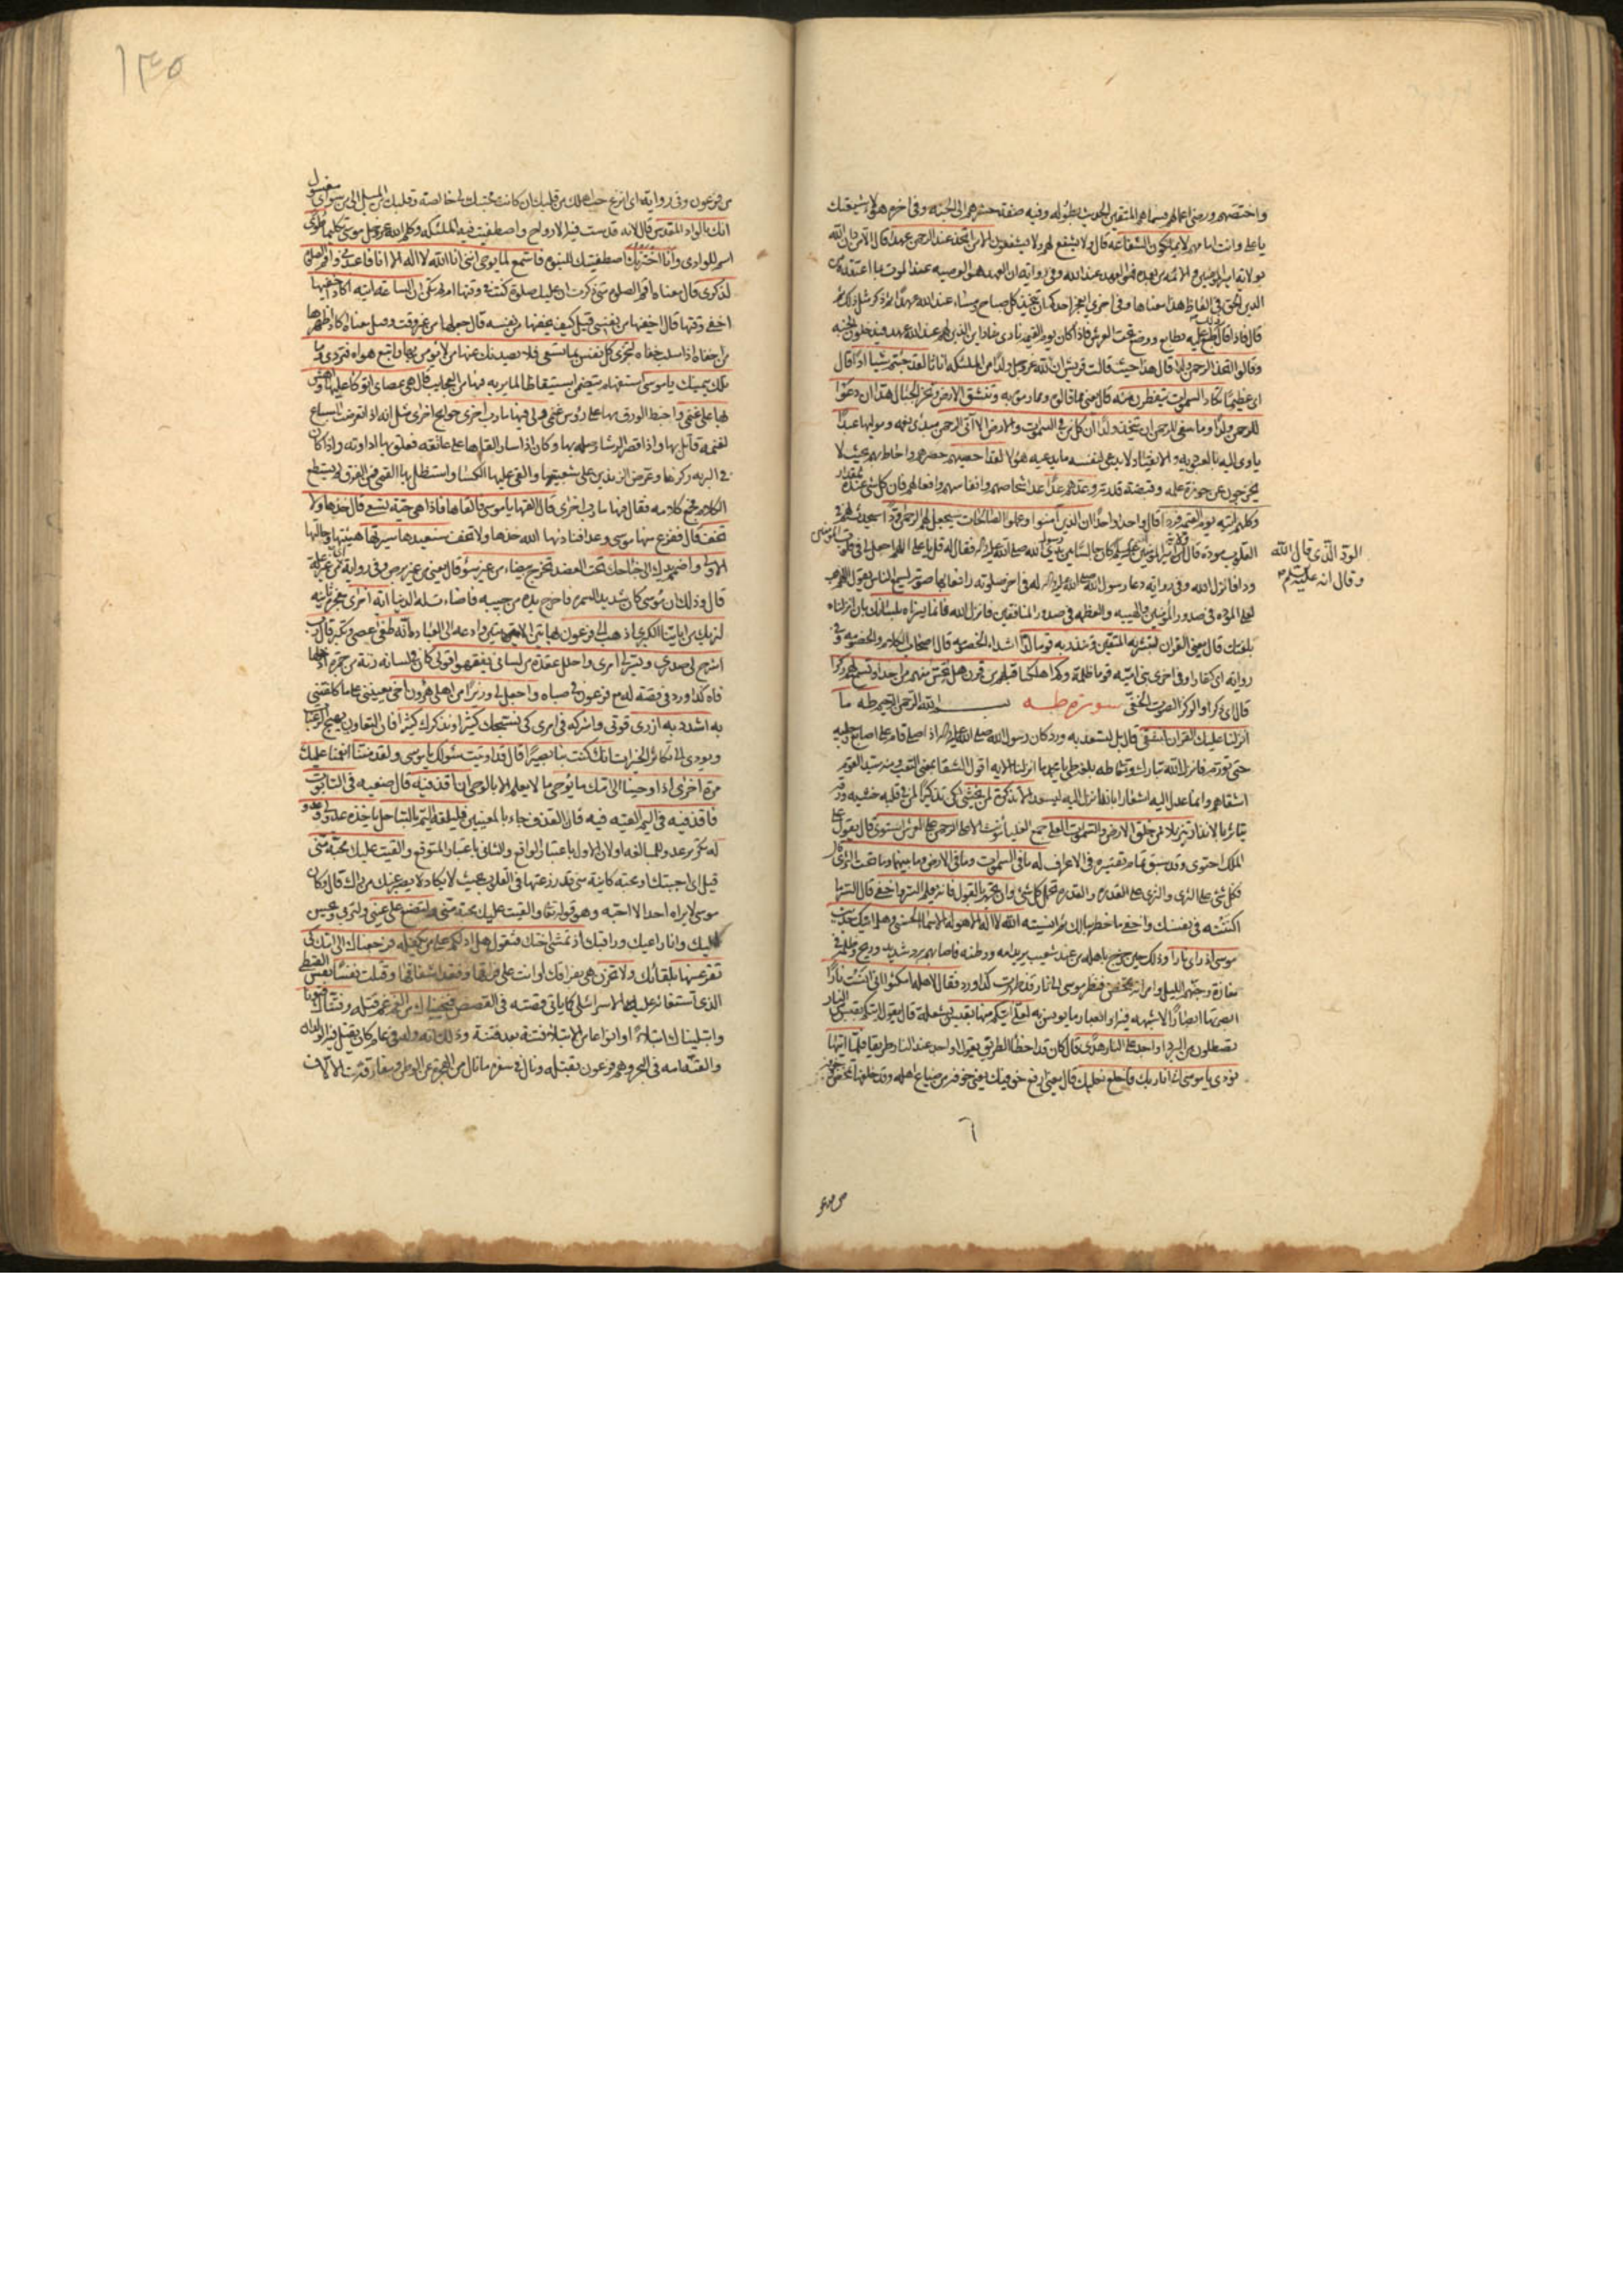 واختصهم ورضي اعمالهم فسماهم المتقين الحديث بطوله وفيه صفة حشرهم الى الجنة وفي اخره هؤلاء شيعتك
يا علي وانت امامهم لا يملكون الشفاعة قال ولا يشفع لهم ولا يشفعون الا من اتخذ عند الرحمن عهدا قال الا من دان الله
بولاية امير المؤمنين والائمة من بعده فهو العهد عند الله وفي رواية ان العهد هو الوصية عند الموت بما اعتقده من
الدين الحق في الفاظ هذا معناها وفي اخرى ايعجز احدكم ان يتخذ كل صباح ومساء عند الله عهدا ثم ذكر مثل ذلك ثم
قال فاذا قال ذلك طبع عليه بطابع ووضع تحت العرش فاذا كان يوم القيمة نادى مناد اين الذين لهم عند الله عهد فيدخلون الجنة
وقالوا اتخذ الرحمن ولدا قال هذا حيث قالت قريش ان لله عز وجل ولدا من الملئكة اناثا لقد جئتم شيئا ادا قال
اي عظيما تكاد السموات يتفطرن منه قال يعني مما قالوه ومما رموه به وتنشق الارض وتخر الجبال هدا ان دعوا
للرحمن ولدا وما ينبغي للرحمن ان يتخذ ولدا ان كل من في السموات والارض الا آتي الرحمن عبدا
ياوي اليه بالعبودية والانقياد ولا يدعي لنفسه ما يدعيه هؤلاء لقد احصيهم حصرهم واحاط بهم بحيث لا
يخرجون عن حوزة علمه وقبضة قدرته وعدهم عدا عد اشخاصهم وانفاسهم وافعالهم فان كل شيء عنده بمقدار
وكلهم آتيه يوم القيمة فردا قال واحدا واحدا ان الذين آمنوا وعملوا الصالحات سيجعل لهم الرحمن ودا سيحدث لهم في
القلوب مودة قال كان جالسا بين يدي رسول الله صلى الله عليه واله فقال له قل يا علي اللهم اجعل لي في قلوب المؤمنين
الود الذي قال الله
وقال انه عليه السلم
ودا فانزل الله وفي رواية دعا رسول الله صلى الله عليه واله له في اخر صلوته رافعا بها صوته يسمع الناس يقول اللهم هب
لعلي المودة في صدور المؤمنين والهيبة والعظمة في صدور المنافقين فانزل الله فانما يسرناه بلسانك بان انزلناه
بلغتك قال يعني القران لتبشر به المتقين وتنذر به قوما لدا اشداء الخصومة قال اصحاب الكلام والخصومة وفي
رواية اي كفارا وفي اخرى بني امية قوما ظلمة وكم اهلكنا قبلهم من قرن هل تحس منهم من احد او تسمع لهم ركزا
قال اي ذكرا والركز الصوت الخفي سورة طه بسم الله الرحمن الرحيم طه ما
انزلنا عليك القران لتشقى قال بل لتسعد به وورد كان رسول الله صلى الله عليه واله اذا صلى قام على اصابع رجليه
حتى تورم فانزل الله تبارك وتعالى طه بلغة طي يا محمد ما انزلنا الاية اقول الشقا بمعنى التعب ومنه سيد القوم
اشقاهم وانما عدل اليه اشعارا بانه انزل اليه ليسعد الا تذكرة لمن يخشى لكن تذكيرا لمن في قلبه خشية ورقة
يتاثر بالانذار تنزيلا ممن خلق الارض والسموات العلى جمع العليا تانيث الاعلى الرحمن على العرش استوى قال يقول على
الملك احتوى وقد سبق تمام تفسيره في الاعراف له ما في السموات وما في الارض وما بينهما وما تحت الثرى قال
فكل شيء على الثرى والثرى على القدرة والقدرة تحمل كل شيء وان تجهر بالقول فانه يعلم السر واخفى قال السر ما
اكننته في نفسك واخفى ما خطر ببالك ثم انسيته الله لا اله الا هو له الاسماء الحسنى وهل اتيك حديث
موسى اذ راى نارا وذلك حين خرج باهله من عند شعيب يريد امه ووطنه فاصابهم برد شديد وريح وظلمة في
مفازة وجنهم الليل وامراته تمخض فنظر موسى الى نار قد ظهرت كذا ورد فقال لاهله امكثوا اني آنست نارا
ابصرتها ابصارا لا شبهة فيه او ابصار ما يونس به لعلي آتيكم منها بقبس بشعلة قال يقول آتيكم بقبس من النار
تصطلون من البرد او اجد على النار هدى قال كان قد اخطأ الطريق يقول او اجد عند النار طريقا فلما اتيها
نودي يا موسى اني انا ربك فاخلع نعليك قال يعني ارفع خوفيك يعني خوفه من ضياع اهله وقد خلفها تمخض وخوفه
٦
من فرعون
١٣٤٥
من فرعون وفي رواية اي انزع حب اهلك من قلبك ان كانت محبتك لي خالصة وقلبك من الميل الى من سواي مغسول
انك بالواد المقدس قال لانه قدست فيه الارواح واصطفيت فيه الملئكة وكلم الله عز وجل موسى تكليما طوى
اسم للوادي وانا اخترتك اصطفيتك للنبوة فاستمع لما يوحى انني انا الله لا اله الا انا فاعبدني واقم الصلوة
لذكري قال معناه اقم الصلوة متى ذكرت ان عليك صلوة كنت في وقتها او لم تكن ان الساعة آتية اكاد اخفيها
اخفي وقتها قال اخفيها من نفسي قيل كيف يخفيها من نفسه قال جعلها من غير وقت وقيل معناه اكاد اظهرها
من اخفاه اذا سلب خفاه لتجزى كل نفس بما تسعى فلا يصدنك عنها من لا يؤمن بها واتبع هواه فتردى وما
تلك بيمينك يا موسى استفهام يتضمن استيقاظا لما يريه فيها من العجايب قال هي عصاي اتوكؤ عليها واهش
بها على غنمي واخبط الورق بها على رؤس غنمي ولي فيها مآرب اخرى حوايج اخرى مثل انه اذا تعرضت السباع
لغنمه قاتل بها واذا قصر الرشا وصله بها وكان اذا سار القاها على عاتقه فعلق بها اداوته واذا كان
في البرية ركزها وعرض الزندين على شعبتيها والقى عليها الكساء واستظل به القمي فمن الفرق لم يستطع
الكلام فجمع كلامه فقال فيها مآرب اخرى قال القها يا موسى فالقاها فاذا هي حية تسعى قال خذها ولا
تخف قال ففزع منها موسى وعدا فناداه الله خذها ولا تخف سنعيدها سيرتها هيئتها وحالتها
الاولى واضمم يدك الى جناحك تحت العضد تخرج بيضاء من غير سوء قال يعني من غير برص وفي رواية من غير علة
قال وذلك ان موسى كان شديد السمرة فاخرج يده من جيبه فاضاءت له الدنيا آية اخرى معجزة ثانية
لنريك من آياتنا الكبرى اذهب الى فرعون بهاتين الايتين وادعه الى العبادة انه طغى عصى وتكبر قال رب
اشرح لي صدري ويسر لي امري واحلل عقدة من لساني يفقهوا قولي كان في لسانه رتة من جمرة ادخلها
فاه كذا ورد في قصة له مع فرعون في صباه واجعل لي وزيرا من اهلي هرون اخي يعينني على ما كلفتني
به اشدد به ازري قوتي واشركه في امري كي نسبحك كثيرا ونذكرك كثيرا فان التعاون يهيج الرغبات
ويودي الى تكاثر الخيرات انك كنت بنا بصيرا قال قد اوتيت سؤلك يا موسى ولقد مننا انعمنا عليك
مرة اخرى اذ اوحينا الى امك ما يوحى ما لا يعلم الا بالوحي ان اقذفيه قال ضعيه في التابوت
فاقذفيه في اليم القيه فيه فان القذف جاء بالمعنيين فليلقه اليم بالساحل ياخذه عدو لي وعدو
له تكرير عدو للمبالغة او لان الاول باعتبار الواقع والثاني باعتبار المتوقع والقيت عليك محبة مني
قيل اي احببتك او محبة كاينة مني قد زرعتها في القلوب بحيث لا يكاد يصبر عنك من راك قال وكان
موسى لا يراه احد الا احبه وهو قوله تعالى والقيت عليك محبة مني ولتصنع على عيني ولتربى ويحسن
اليك وانا راعيك وراقبك اذ تمشي اختك فتقول هل ادلكم على من يكفله فرجعناك الى امك كي
تقر عينها بلقائك ولا تحزن هي بفراقك او انت على فراقها وفقد اشفاقها وقتلت نفسا نفس القبطي
الذي استغاثه عليه الاسرائيلي كما ياتي قصته في القصص فنجيناك من الغم غم قتله وفتناك فتونا
وابتليناك ابتلاء او انواعا من الابتلاء فتنة بعد فتنة وذلك انه ولد في عام كان يقتل فيه الولدان
والقته امه في البحر وهم فرعون بقتله ونال في سفره ما نال من الهجرة عن الوطن ومفارقة الالاف